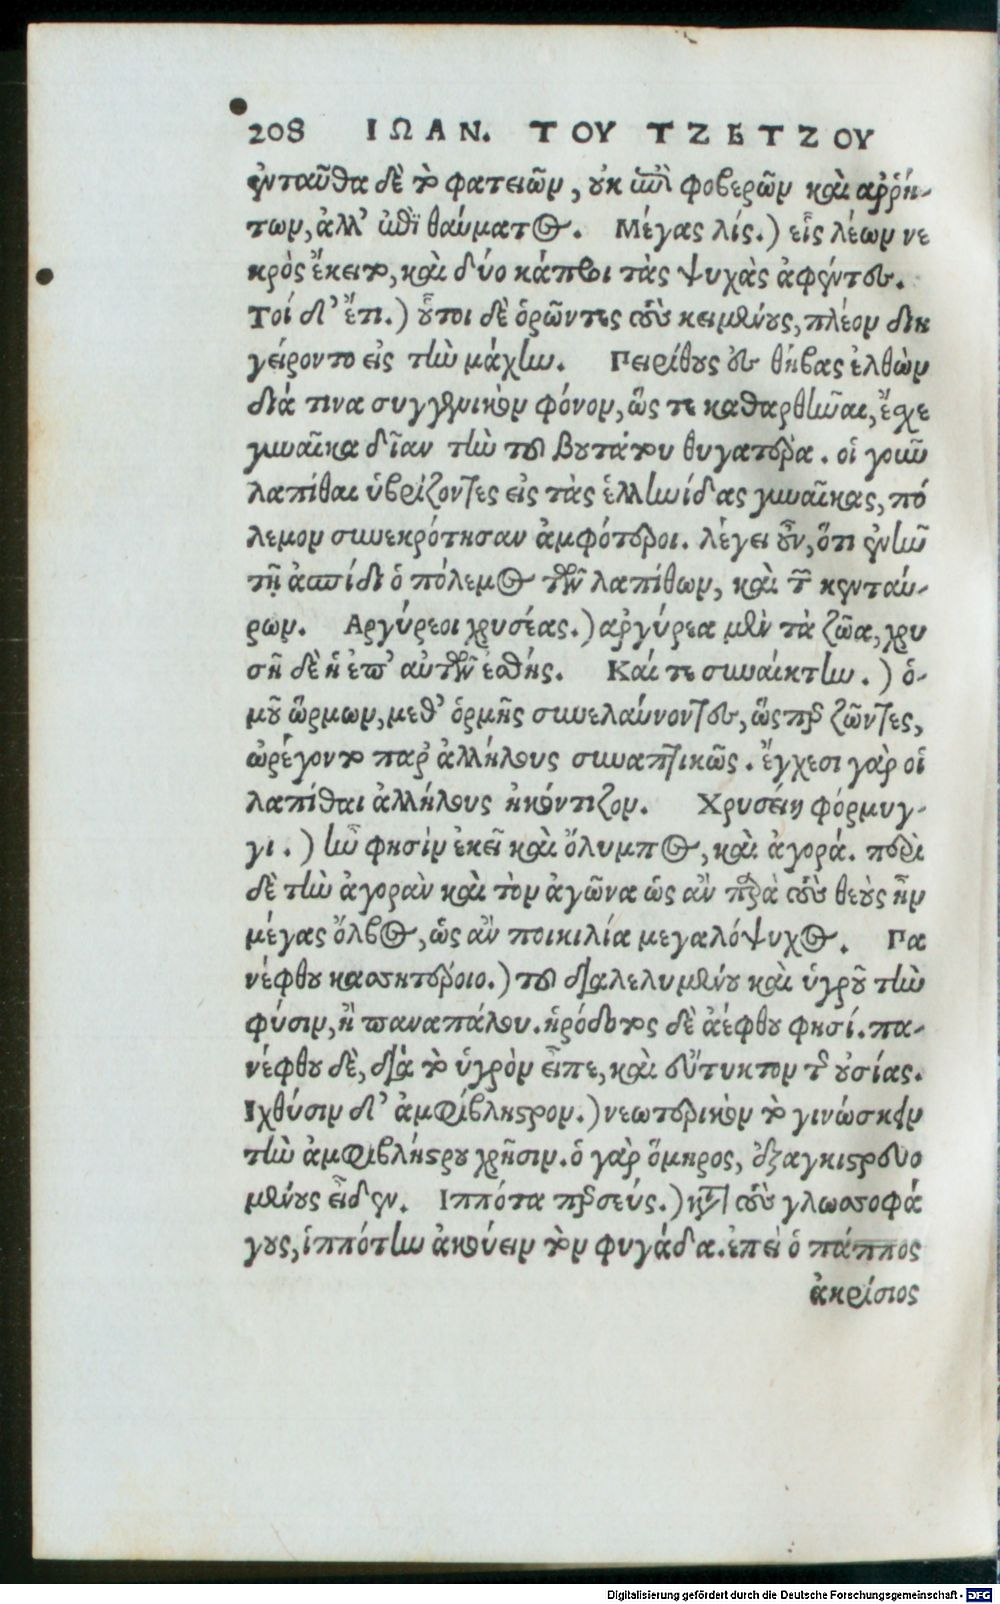 208 ΙΩΑΝ. ΤΟΥ ΤΖΕΤΖΟΥ
ἐνταῦθα δὲ τὸ φατειῶν, οὐκ ἐπὶ φοβερῶν καὶ ἀῤῥή-
των, ἀλλ' ἐπὶ θαύματος. Μέγας λίς.) εἷς λέων νε
κρὸς ἔκειτο, καὶ δύο κάπροι τὰς ψυχὰς ἀφέντες.
Τοί δ' ἔτι.) οὗτοι δὲ ὁρῶντες τοὺς κειμένους, πλέον διη
γείροντο εἰς τὴν μάχην. Πειρίθους ἐς θήβας ἐλθὼν
διά τινα συγγενικὸν φόνον, ὥς τε καθαρθῆναι, ἔσχε
γυναῖκα δῖαν τὴν τοῦ βουτάτου θυγατέρα. οἱ γοῦν
λαπίθαι ὑβρίζοντες εἰς τὰς ἑλληνίδας γυναῖκας, πό
λεμον συνεκρότησαν ἀμφότεροι. λέγει οὖν, ὅτι ἐν ἦν
τῇ ἀσπίδι ὁ πόλεμος τῶν λαπίθων, καὶ τῶν κενταύ-
ρων. Αργύρεοι χρυσέας.) ἀργύρεα μὲν τὰ ζῶα, χρυ
σῆ δὲ ἡ ἐπ' αὐτῶν ἐσθής. Καί τε συναίκτην.) ὁ-
μοῦ ὥρμων, μεθ' ὁρμῆς συνελαύνοντες, ὥςπερ ζῶντες,
ὠρέγοντο παρ' ἀλλήλους συναπτικῶς. ἔγχεσι γὰρ οἱ
λαπίθαι ἀλλήλους ἠκόντιζον. Χρυσέιη φόρμιγ-
γι.) ἦν φησὶν ἐκεῖ καὶ ὄλυμπος, καὶ ἀγορά. περὶ
δὲ τὴν ἀγορὰν καὶ τὸν ἀγῶνα ὡς ἂν παρὰ τοὺς θεοὺς ἦν
μέγας ὄλβος, ὡς ἂν ποικιλία μεγαλόψυχος. Πα
νέφθου κασσιτέροιο.) τοῦ διαλελυμένου καὶ ὑγροῦ τὴν
φύσιν, ἢ παναπάλου. ἡρόδοτος δὲ ἀέφθου φησί. πα-
νέφθου δὲ, διὰ τὸ ὑγρὸν εἶπε, καὶ εὔτυκτον τῆς οὐσίας.
Ιχθύσιν δ' ἀμφίβληστρον.) νεωτερικὸν τὸ γινώσκειν
τὴν ἀμφιβλήστρου χρῆσιν. ὁ γὰρ ὅμηρος, ἐξαγκιστρευο
μένους εἶδεν. Ιππότα περσεύς.) κατὰ τοὺς γλωσσογρά
φους, ἱππότην ἀκούειν τὸν φυγάδα. ἐπεὶ ὁ πάππος
ἀκρίσιος